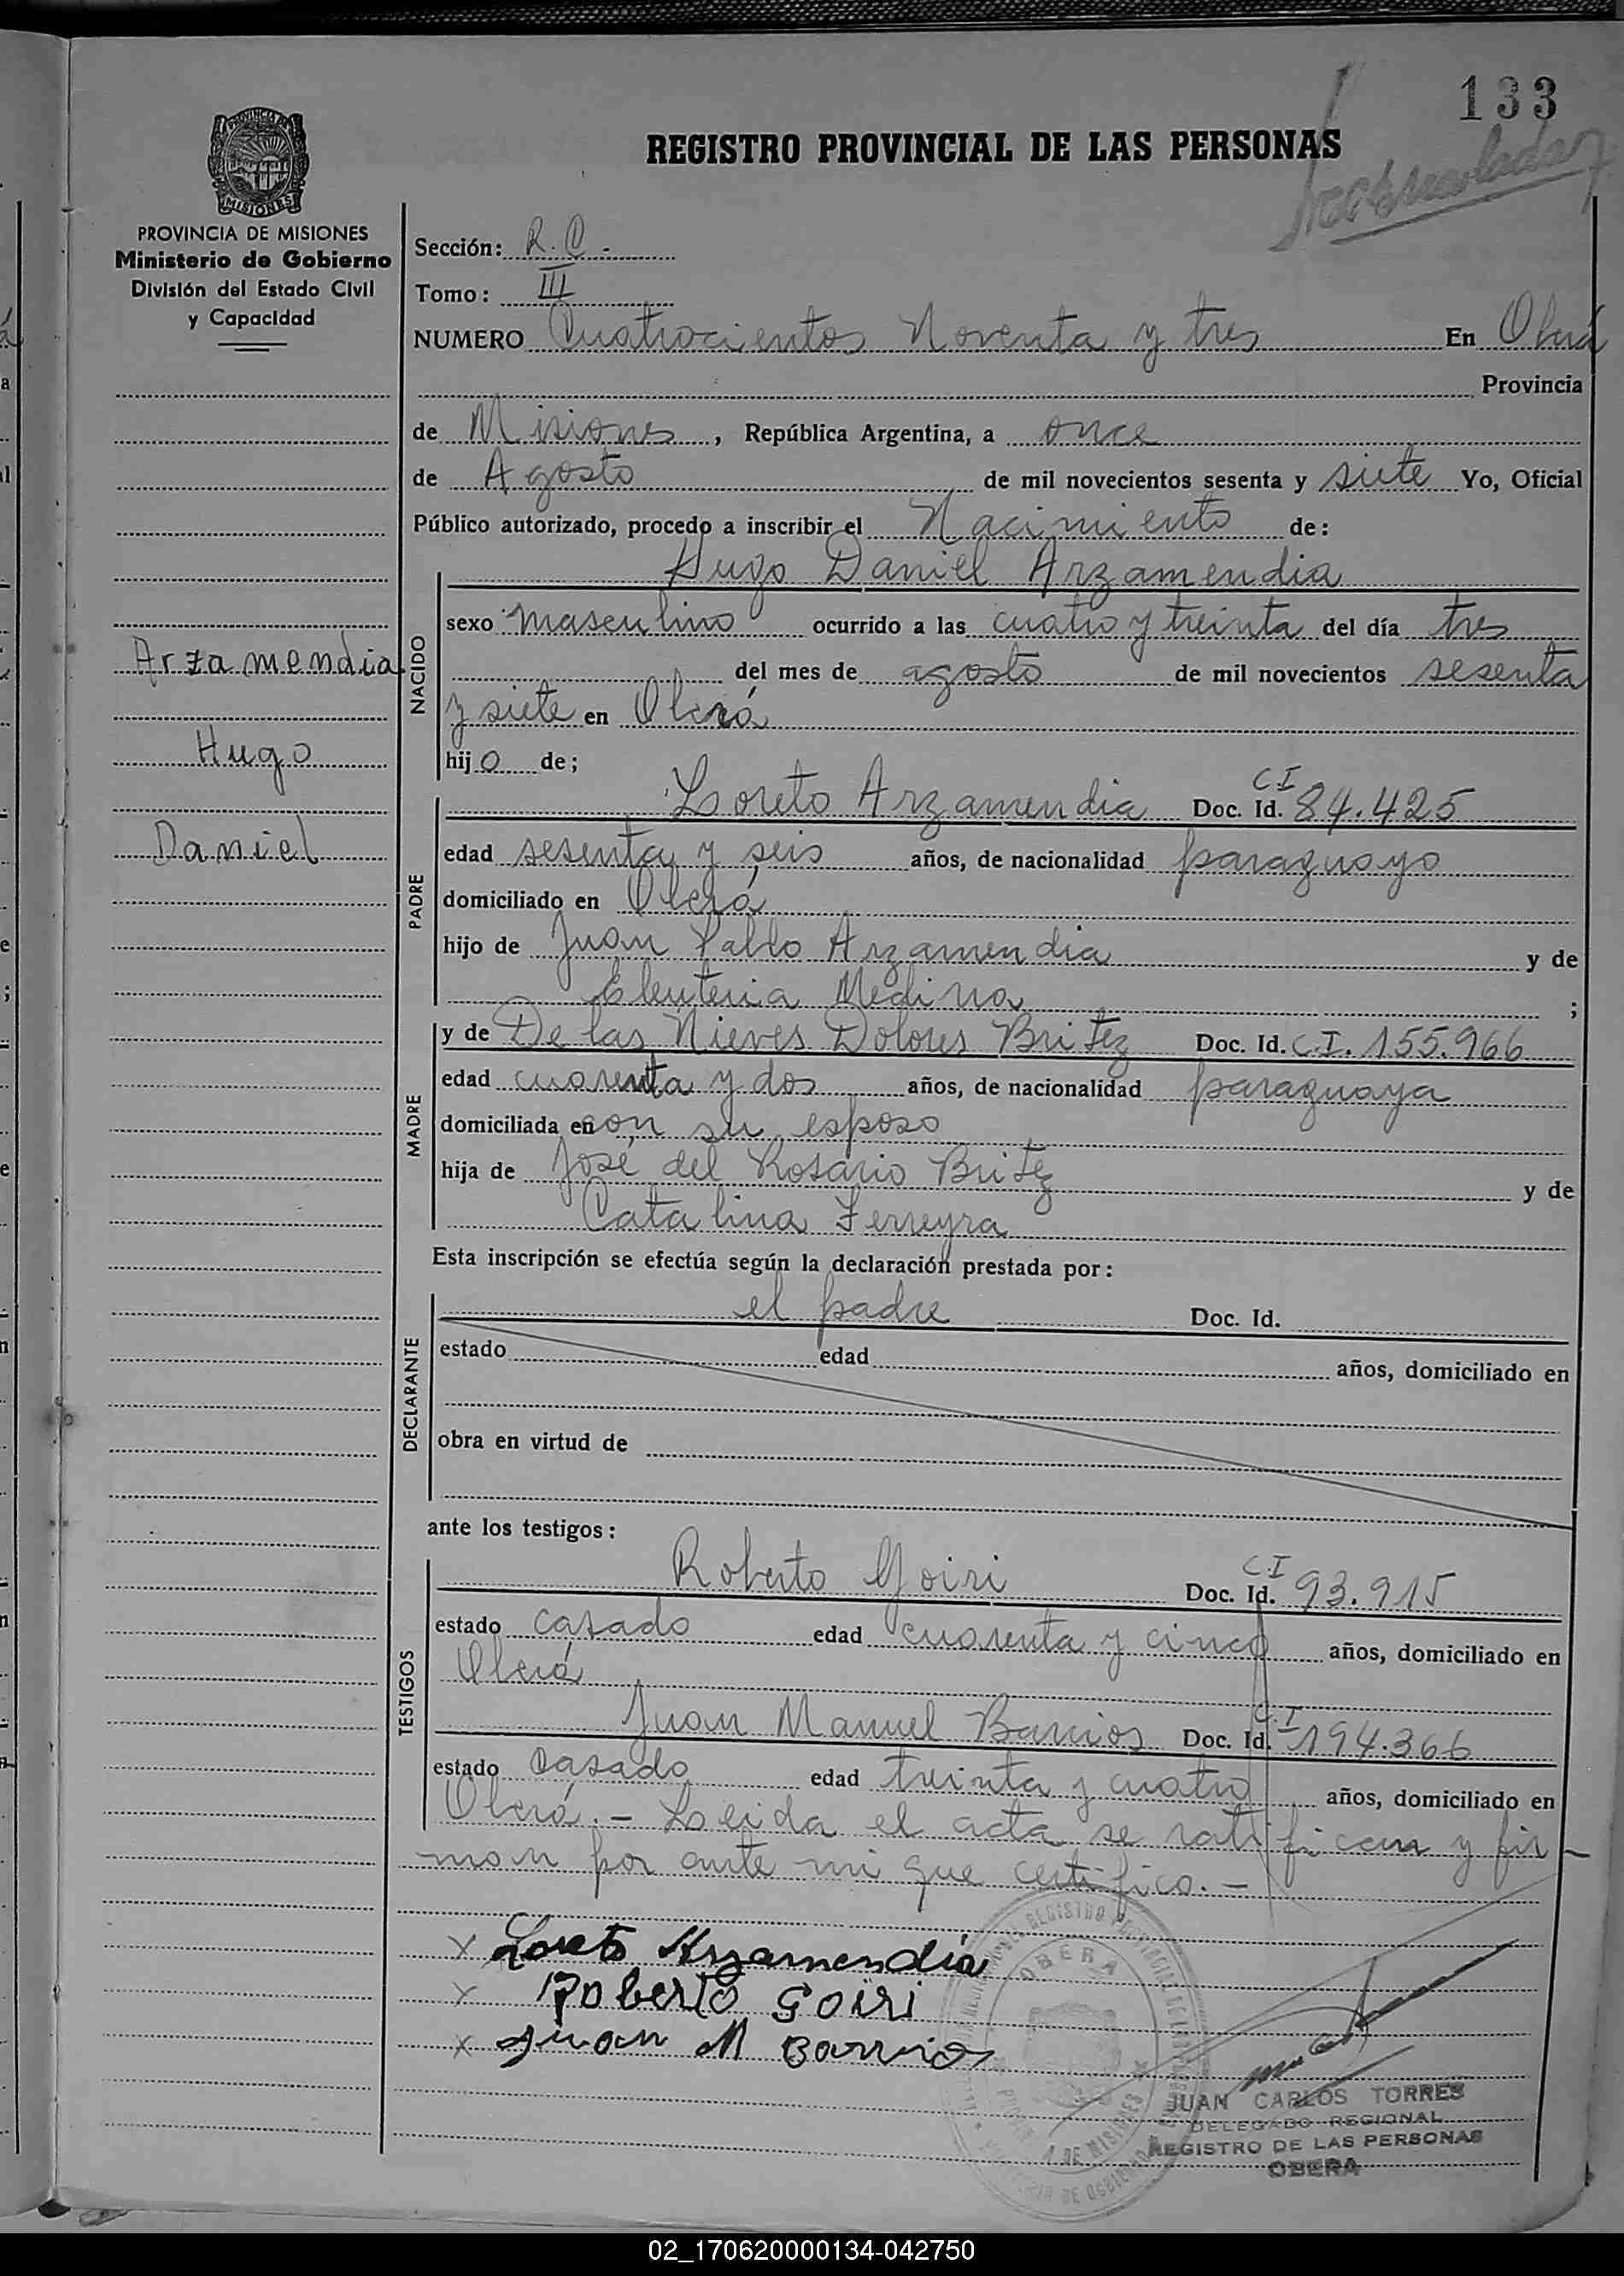 133
REGISTRO PROVINCIAL DE LAS PERSONAS
PROVINCIA DE MISIONES
Ministerio de Gobierno
División del Estado Civil
y Capacidad
Sección: R.C.-
Tomo: III
NUMERO Cuatrocientos Noventa y tres En Oberá
Provincia
de Misiones, República Argentina, a once
de Agosto de mil novecientos sesenta y siete Yo, Oficial
Público autorizado, procedo a inscribir el Nacimiento de:
Hugo Daniel Arzamendia
NACIDO
sexo masculino ocurrido a las cuatro y treinta del día tres
del mes de agosto de mil novecientos sesenta
y siete en Oberá
hijo de;
Arzamendia
Hugo
Daniel
PADRE
Loreto Arzamendia Doc. Id. CI 84.425
edad sesenta y seis años, de nacionalidad paraguayo
domiciliado en Oberá
hijo de Juan Pablo Arzamendia y de
Eleuteria Medina ;
MADRE
y de De las Nieves Dolores Britez Doc. Id. C.I. 155.966
edad cuarenta y dos años, de nacionalidad paraguaya
domiciliada en con su esposo
hija de José del Rosario Britez y de
Catalina Ferreyra
Esta inscripción se efectúa según la declaración prestada por:
DECLARANTE
el padre Doc. Id.
estado edad años, domiciliado en
obra en virtud de
ante los testigos:
TESTIGOS
Roberto Goiri Doc. Id. CI 93.915
estado casado edad cuarenta y cinco años, domiciliado en
Oberá
Juan Manuel Barrios Doc. Id. C.I 194.366
estado casado edad treinta y cuatro años, domiciliado en
Oberá.- Leida el acta se ratifican y fir-
man por ante mi que certifico.-
x Loreto Arzamendia
x Roberto Goiri
x Juan M Barrios
OBERA
JUAN CARLOS TORRES
DELEGADO REGIONAL
REGISTRO DE LAS PERSONAS
OBERA
02_170620000134-042750